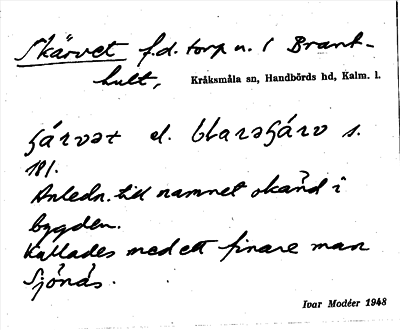 Skärvet f.d. torp u. / Brant-
hult, Kråksmåla sn, Handbörds hd, Kalm. l.
ʃárvət el. blaraʃárv s.
181.
Anledn. till namnet okänd i
bygden.
Kallades med ett finare man
Sjönäs.
Ivar Modéer 1948